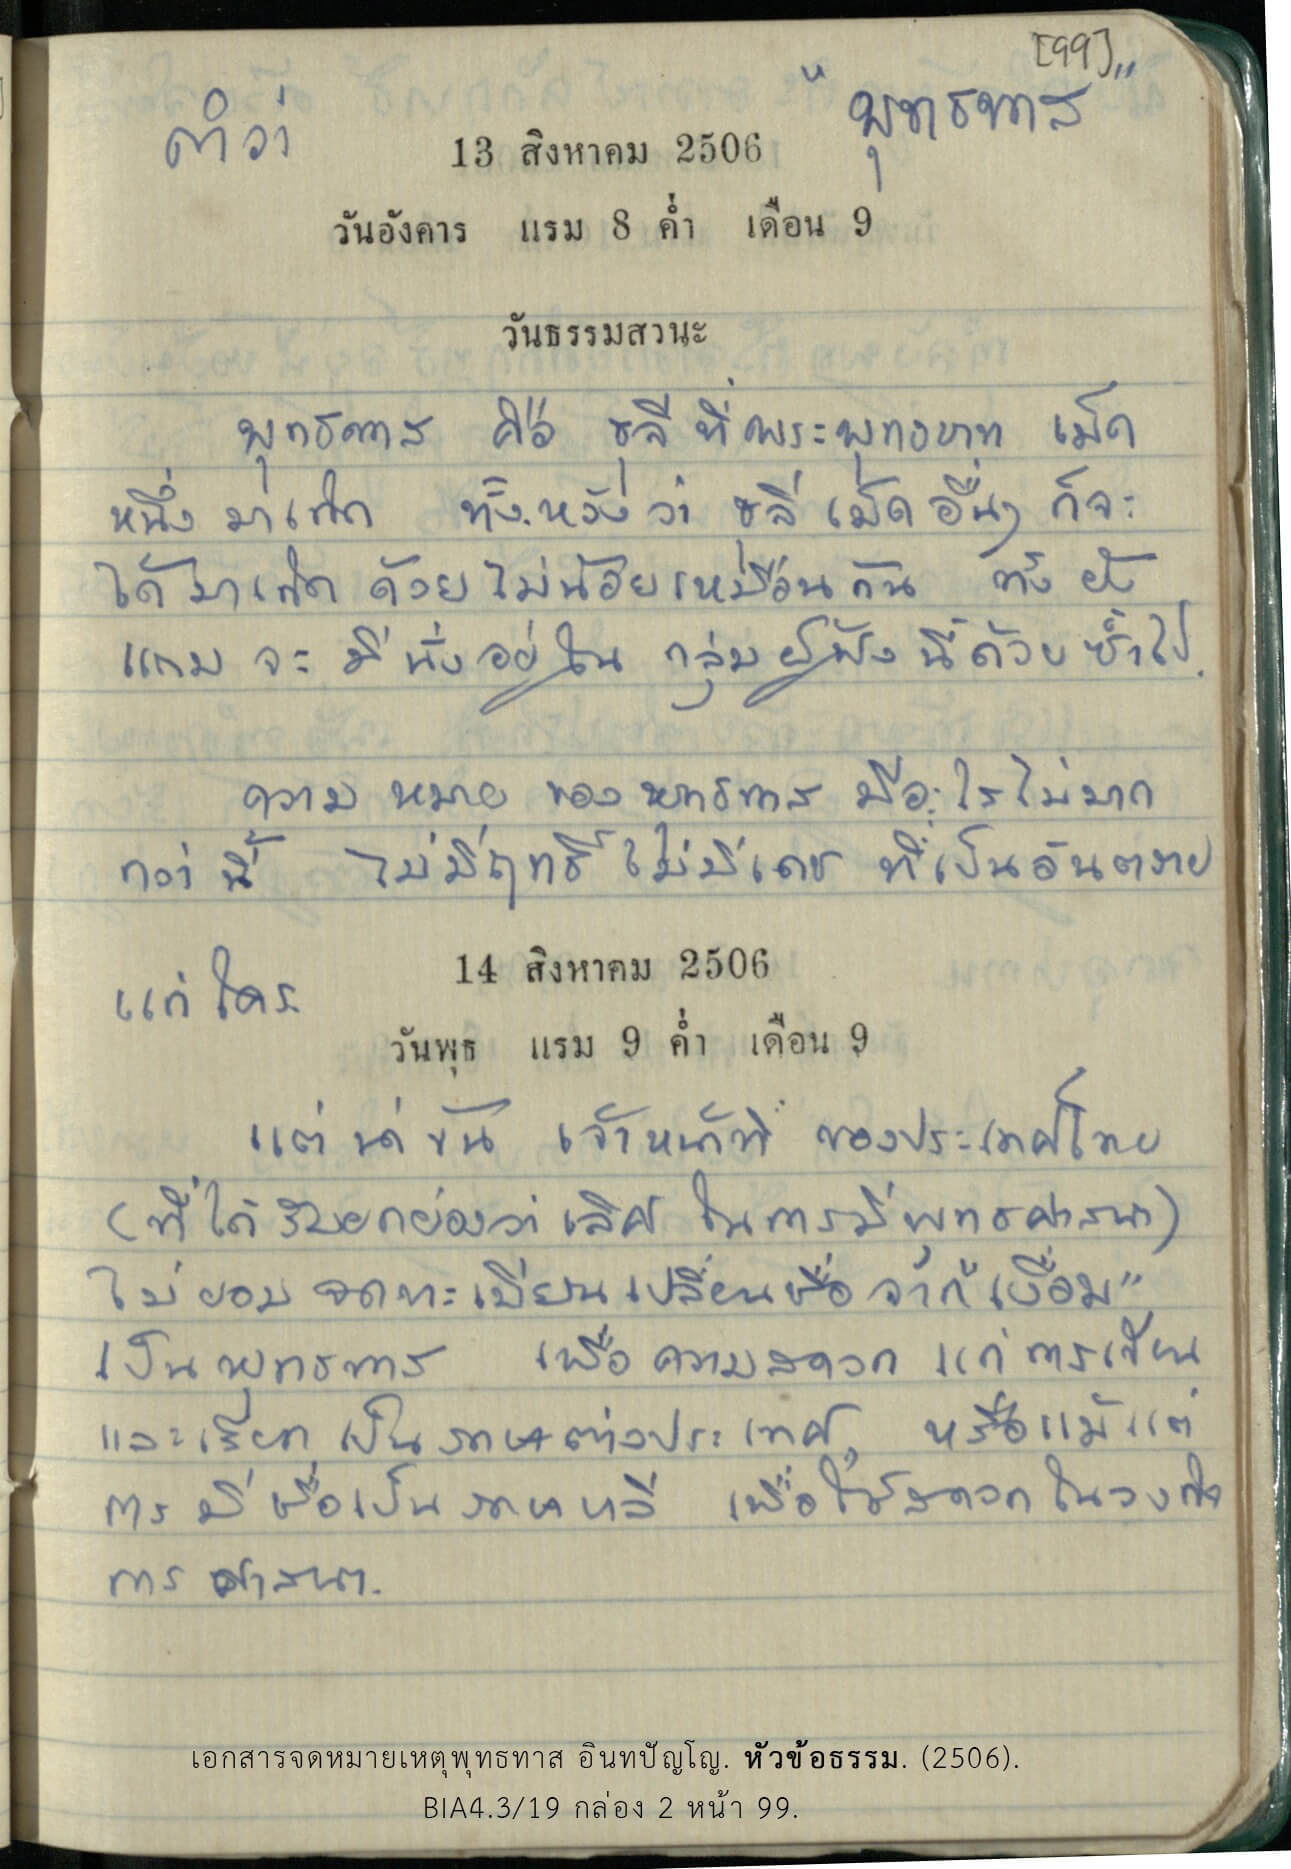 [99]
คำว่า "พุทธทาส"
13 สิงหาคม 2506
วันอังคาร แรม 8 ค่ำ เดือน 9
วันธรรมสวนะ
พุทธทาส คือ ธุลีที่พระพุทธบาท เม็ด
หนึ่ง มาเกิด ทั้งหวังว่า ธุลีเม็ดอื่นๆ ก็จะ
ได้มาเกิด ด้วยไม่น้อยเหมือนกัน ทั้งยัง
แถม จะ มีนั่งอยู่ใน กลุ่มผู้ฟังนี้ด้วยซ้ำไป.
ความหมาย ของพุทธทาส มีอะไรไม่มาก
กว่านี้ ไม่มีฤทธิ์ ไม่มีเดช ที่เป็นอันตราย
14 สิงหาคม 2506
แก่ใคร.
วันพุธ แรม 9 ค่ำ เดือน 9
แต่น่าขัน เจ้าหน้าที่ ของประเทศไทย
(ที่ได้รับยกย่องว่าเลิศ ในการมีพุทธศาสนา)
ไม่ยอม จดทะเบียนเปลี่ยนชื่อ จาก "เงื่อม"
เป็นพุทธทาส เพื่อความสะดวก แก่การเขียน
และเรียก เป็นภาษาต่างประเทศ, หรือแม้แต่
การมีชื่อเป็นภาษาบาลี เพื่อใช้สะดวกในวงกิจ
การศาสนา.
เอกสารจดหมายเหตุพุทธทาส อินทปัญโญ. หัวข้อธรรม. (2506).
BIA4.3/19 กล่อง 2 หน้า 99.